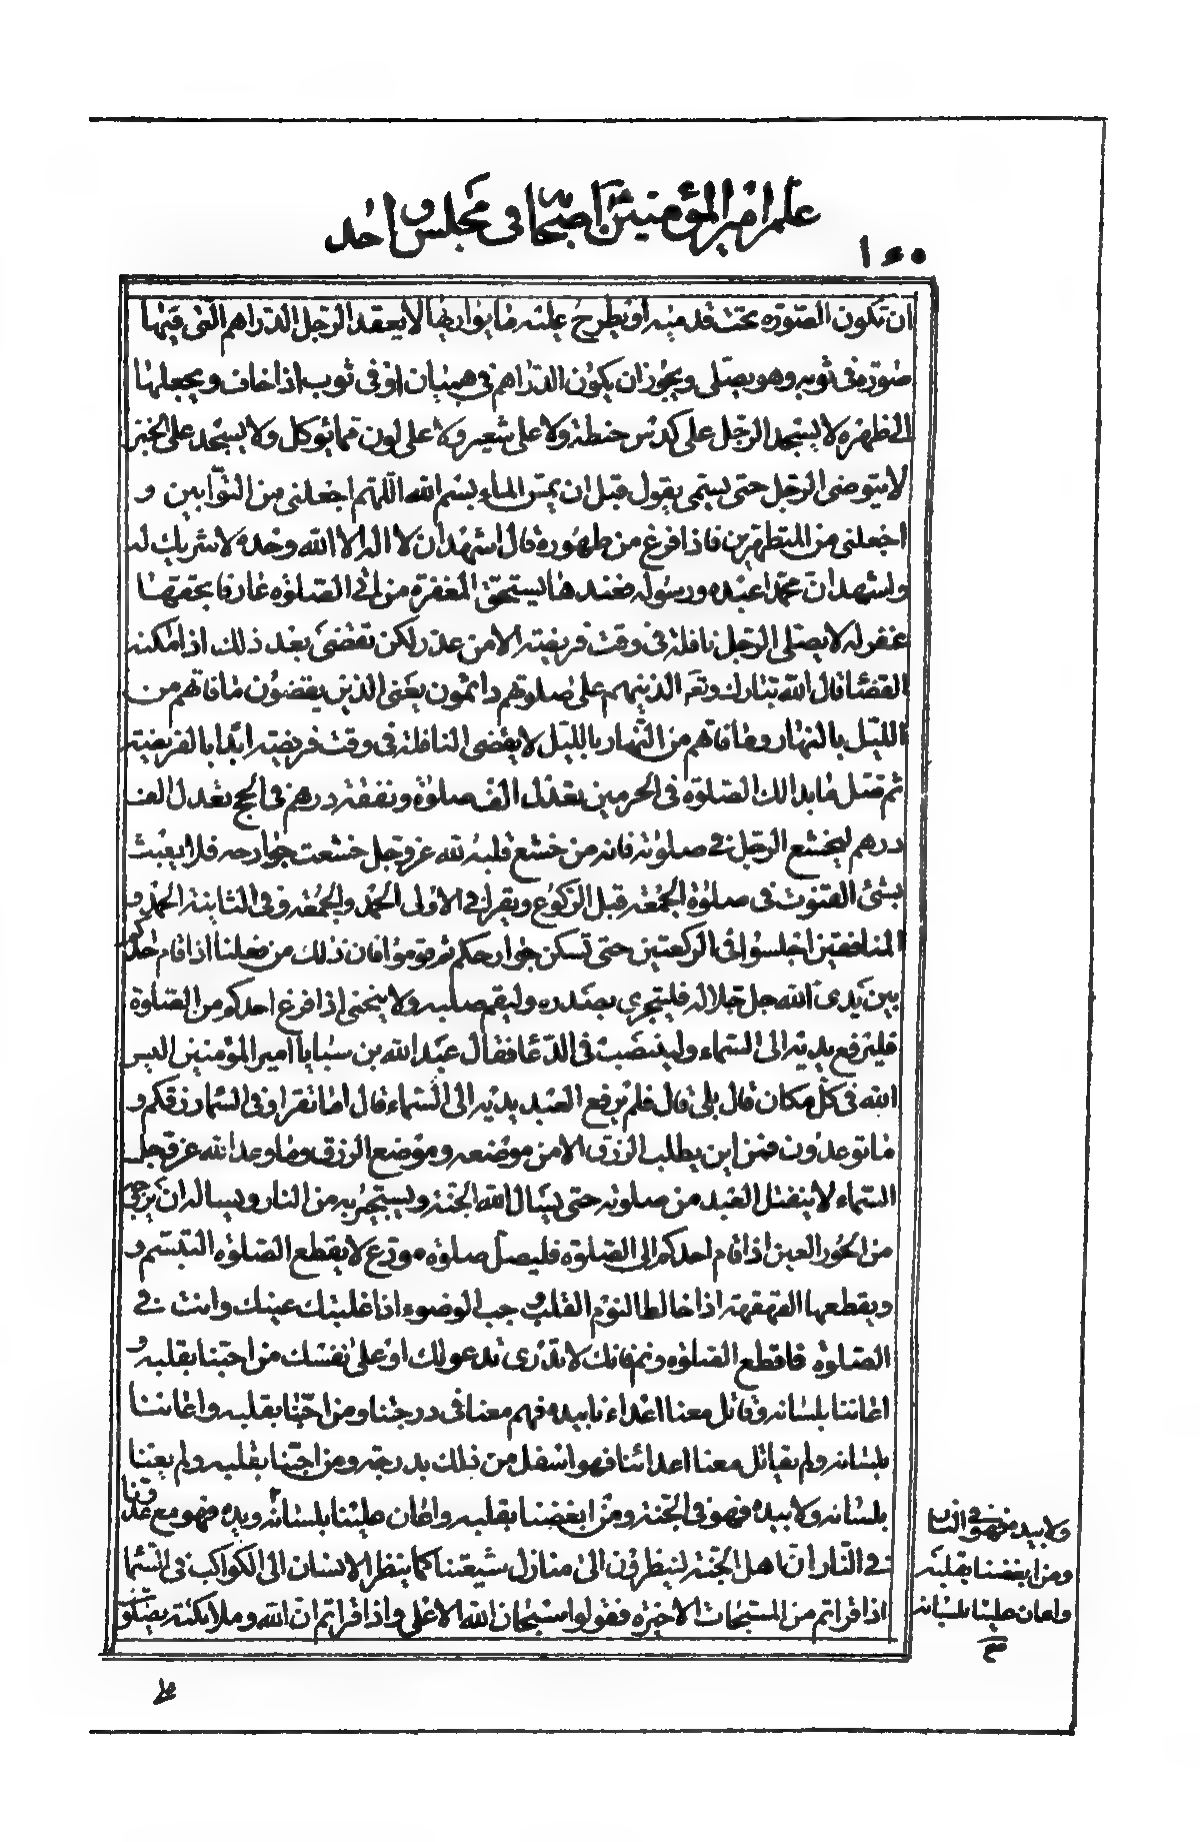 علم امير المؤمنين اصحابه فى مجلس واحد
١٥٥
ان تكون الصّورة تحت قدميه او يطرح عليه ما يواريها لا يعقد الرّجل الدّراهم الّتى فيها
صورة فى ثوبه وهو يصلّى ويجوز ان يكون الدّراهم فى هميان او فى ثوب اذا خاف ويجعلها
الى ظهره لا يسجد الرّجل على كدس حنطة ولا على شعير ولا على لون ممّا يوكل ولا يسجد على الخبز
لا يتوضى الرّجل حتى يسمّى يقول قبل ان يمسّ الماء بسم الله اللّهم اجعلنى من التوّابين و
اجعلنى من المتطهّرين فاذا فرغ من طهوره قال اشهد ان لا اله الا الله وحده لا شريك له
واشهد انّ محمّدا عبده ورسوله فعندها يستحقّ المغفرة من اتى الصّلوة عارفا بحقّها
غفر له لا يصلّى الرّجل نافلة فى وقت فريضة الا من عذر ولكن تقضى بعد ذلك اذا امكنه
القضا قال الله تبارك وتعه الذين هم على صلوتهم دائمون يعنى الذين يقضون ما فاتهم من
اللّيل بالنهار وما فاتهم من النّهار باللّيل لا يقضى النافلة فى وقت فريضة ابدا بالفريضة
ثم صل ما بدا لك الصّلوة فى الحرمين تعدل الف صلوة ونفقة درهم فى الحج تعدل الف
درهم ليخشع الرّجل فى صلوته فانه من خشع قلبه لله عزّوجل خشعت جوارحه فلا يعبث
بشئ القنوت فى صلوة الجمعة قبل الرّكوع ويقرا فى الاولى الحمد والجمعة وفى الثانية الحمد و
المنافقين اجلسوا فى الركعتين حتى تسكن جوارحكم ثم قوموا فان ذلك من فعلنا اذا قام احدكم
بين يدى الله جل جلاله فليتحرى بصدره وليقم صلبه ولا ينحنى اذا فرغ احدكم من الصّلوة
فليرفع يديه الى السّماء ولينصب فى الدّعا فقال عبد الله بن سبا يا امير المؤمنين اليس
الله فى كلّ مكان قال بلى قال فلم يرفع العبد يديه الى السّماء قال اما تقرا وفى السّما رزقكم و
ما توعدون فمن اين يطلب الرزق الا من موضعه وموضع الرزق وما وعد الله عزّوجل
السّماء لا ينفتل العبد من صلوته حتى يسال الله الجنّة ويستجير به من النار ويساله ان يزوجه
من الحور العين اذا قام احدكم الى الصّلوة فليصلّ صلوة مودّع لا يقطع الصّلوة التبسّم و
ويقطعها القهقهة اذا خالط النّوم القلب وجب الوضوء اذا غلبتك عينك وانت فى
الصّلوة فاقطع الصّلوة ونم فانك لا تدرى تدعو لك او على نفسك من احبّنا بقلبه و
اعاننا بلسانه وقاتل معنا اعداءنا بيده فهم معنا فى درجتنا ومن احبّنا بقلبه واعاننا
بلسانه ولم يقاتل معنا اعدائنا فهو اسفل من ذلك بدرجة ومن احبّنا بقلبه ولم يعنّا
بلسانه ولا بيده فهو فى الجنّة ومن ابغضنا بقلبه واعان علينا بلسانه ويده فهو مع عدوّنا
فى النّار انّ اهل الجنّة لينظرون الى منازل شيعتنا كما ينظر الانسان الى الكواكب فى السّما
اذا قراتم من المسبّحات الاخيرة فقولوا سبحان الله الاعلى واذا قراتم انّ الله وملائكته يصلّون
ومن ابغضنا بقلبه
واعان علينا بلسانه
ولا بيده فهو فى النار
صح